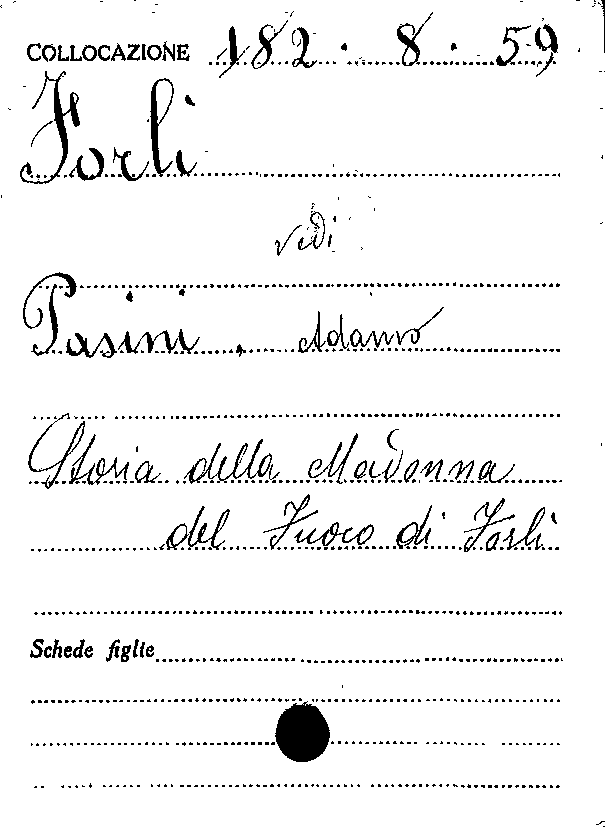 COLLOCAZIONE 182.8.59
Forlì
vedi
Pasini, Adamo
Storia della Madonna
del Fuoco di Forlì
Schede figlie